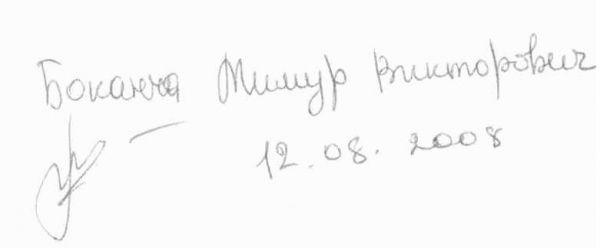 Боканча Тимур Викторович
12.08.2008